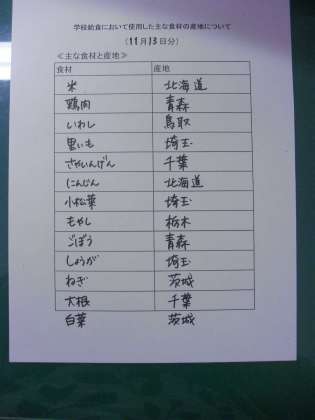 学校給食において使用した主な食材の産地について
（11月13日分）
≪主な食材と産地≫
食材 産地
米 北海道
鶏肉 青森
いわし 鳥取
里いも 埼玉
さやいんげん 千葉
にんじん 北海道
小松菜 埼玉
もやし 栃木
ごぼう 青森
しょうが 埼玉
ねぎ 茨城
大根 千葉
白菜 茨城